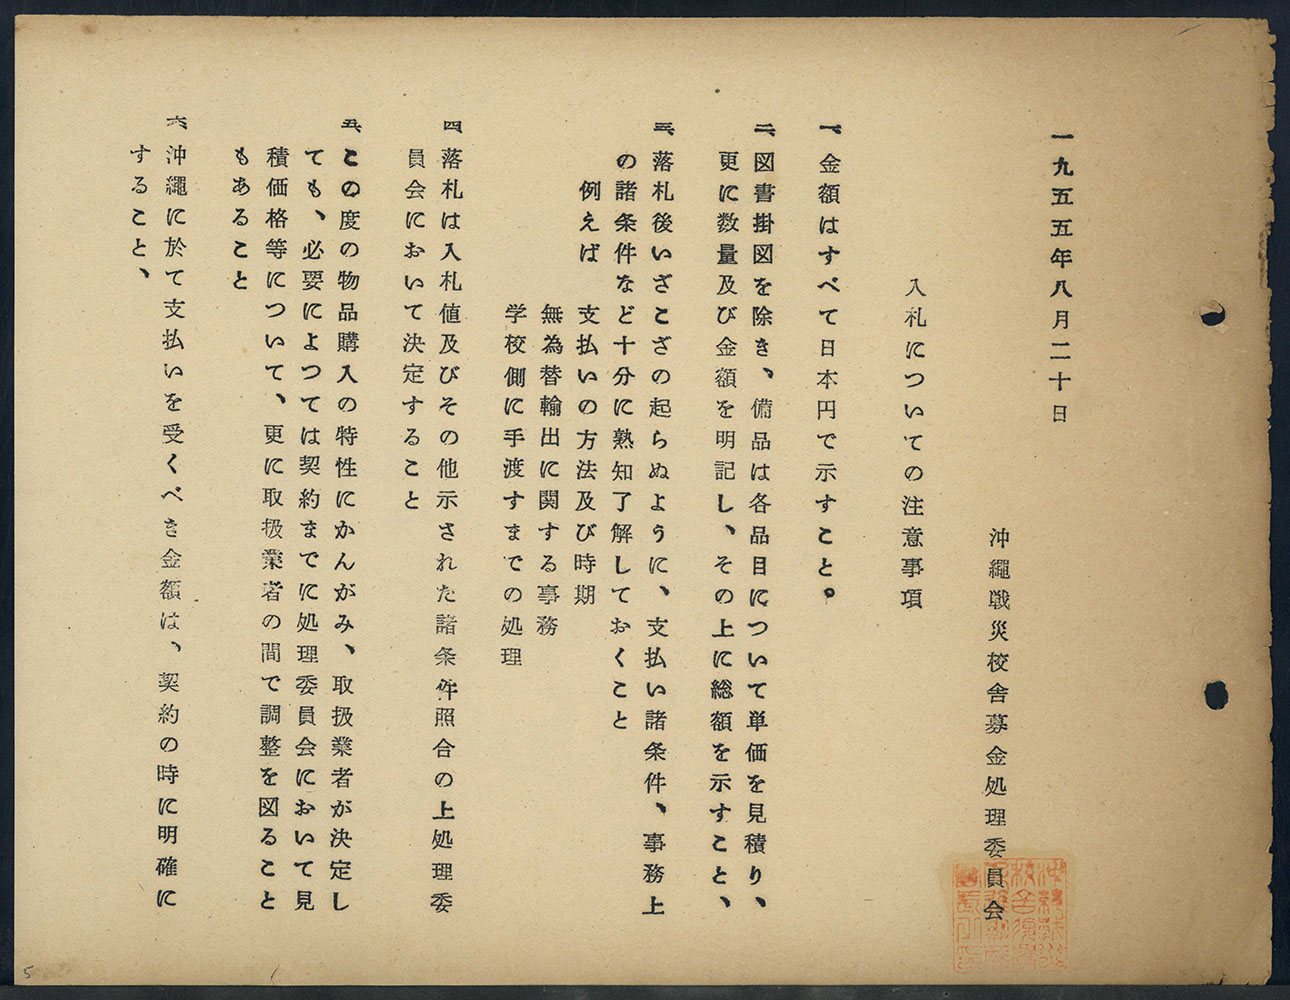 一九五五年八月二十日
沖繩戦災校舎募金処理委員会
入札についての注意事項
一、金額はすべて日本円で示すこと。
二、図書掛図を除き、備品は各品目について単価を見積り、
更に数量及び金額を明記し、その上に総額を示すこと、
三、落札後いざこざの起らぬように、支払い諸条件、事務上
の諸条件など十分に熟知了解しておくこと
例えば　支払いの方法及び時期
無為替輸出に関する事務
学校側に手渡すまでの処理
四、落札は入札値及びその他示された諸条件照合の上処理委
員会において決定すること
五、この度の物品購入の特性にかんがみ、取扱業者が決定し
ても、必要によつては契約までに処理委員会において見
積価格等について、更に取扱業者の間で調整を図ること
もあること
六、沖繩に於て支払いを受くべき金額は、契約の時に明確に
すること、
5